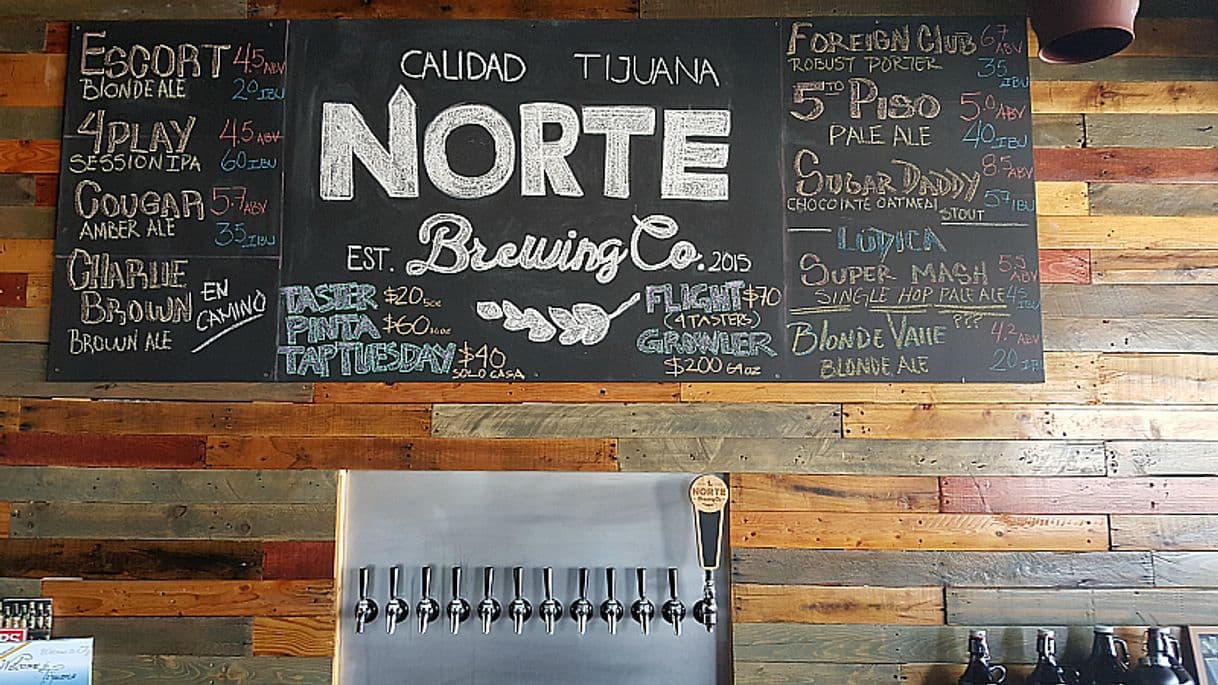 ESCORT 4.5 ABV
BLONDE ALE 20 IBU
4PLAY 4.5 ABV
SESSION IPA 60 IBU
COUGAR 5.7 ABV
AMBER ALE 35 IBU
CHARLIE
BROWN EN
CAMINO
BROWN ALE
CALIDAD TIJUANA
NORTE
Brewing Co.
EST. 2015
TASTER $20 5oz
PINTA $60 16oz
TAP TUESDAY $40
SOLO CASA
FLIGHT $70
(4 TASTERS)
GROWLER
$200 64oz
FOREIGN CLUB 6.7 ABV
ROBUST PORTER 35 IBU
5TO PISO 5.0 ABV
PALE ALE 40 IBU
SUGAR DADDY 8.5 ABV
CHOCOLATE OATMEAL 57 IBU
STOUT
LÚDICA
SUPER MASH 5.5 ABV
SINGLE HOP PALE ALE 45 IBU
???
BLONDE VALLE 4.2 ABV
BLONDE ALE 20 IBU
NORTE
Brewing Co.